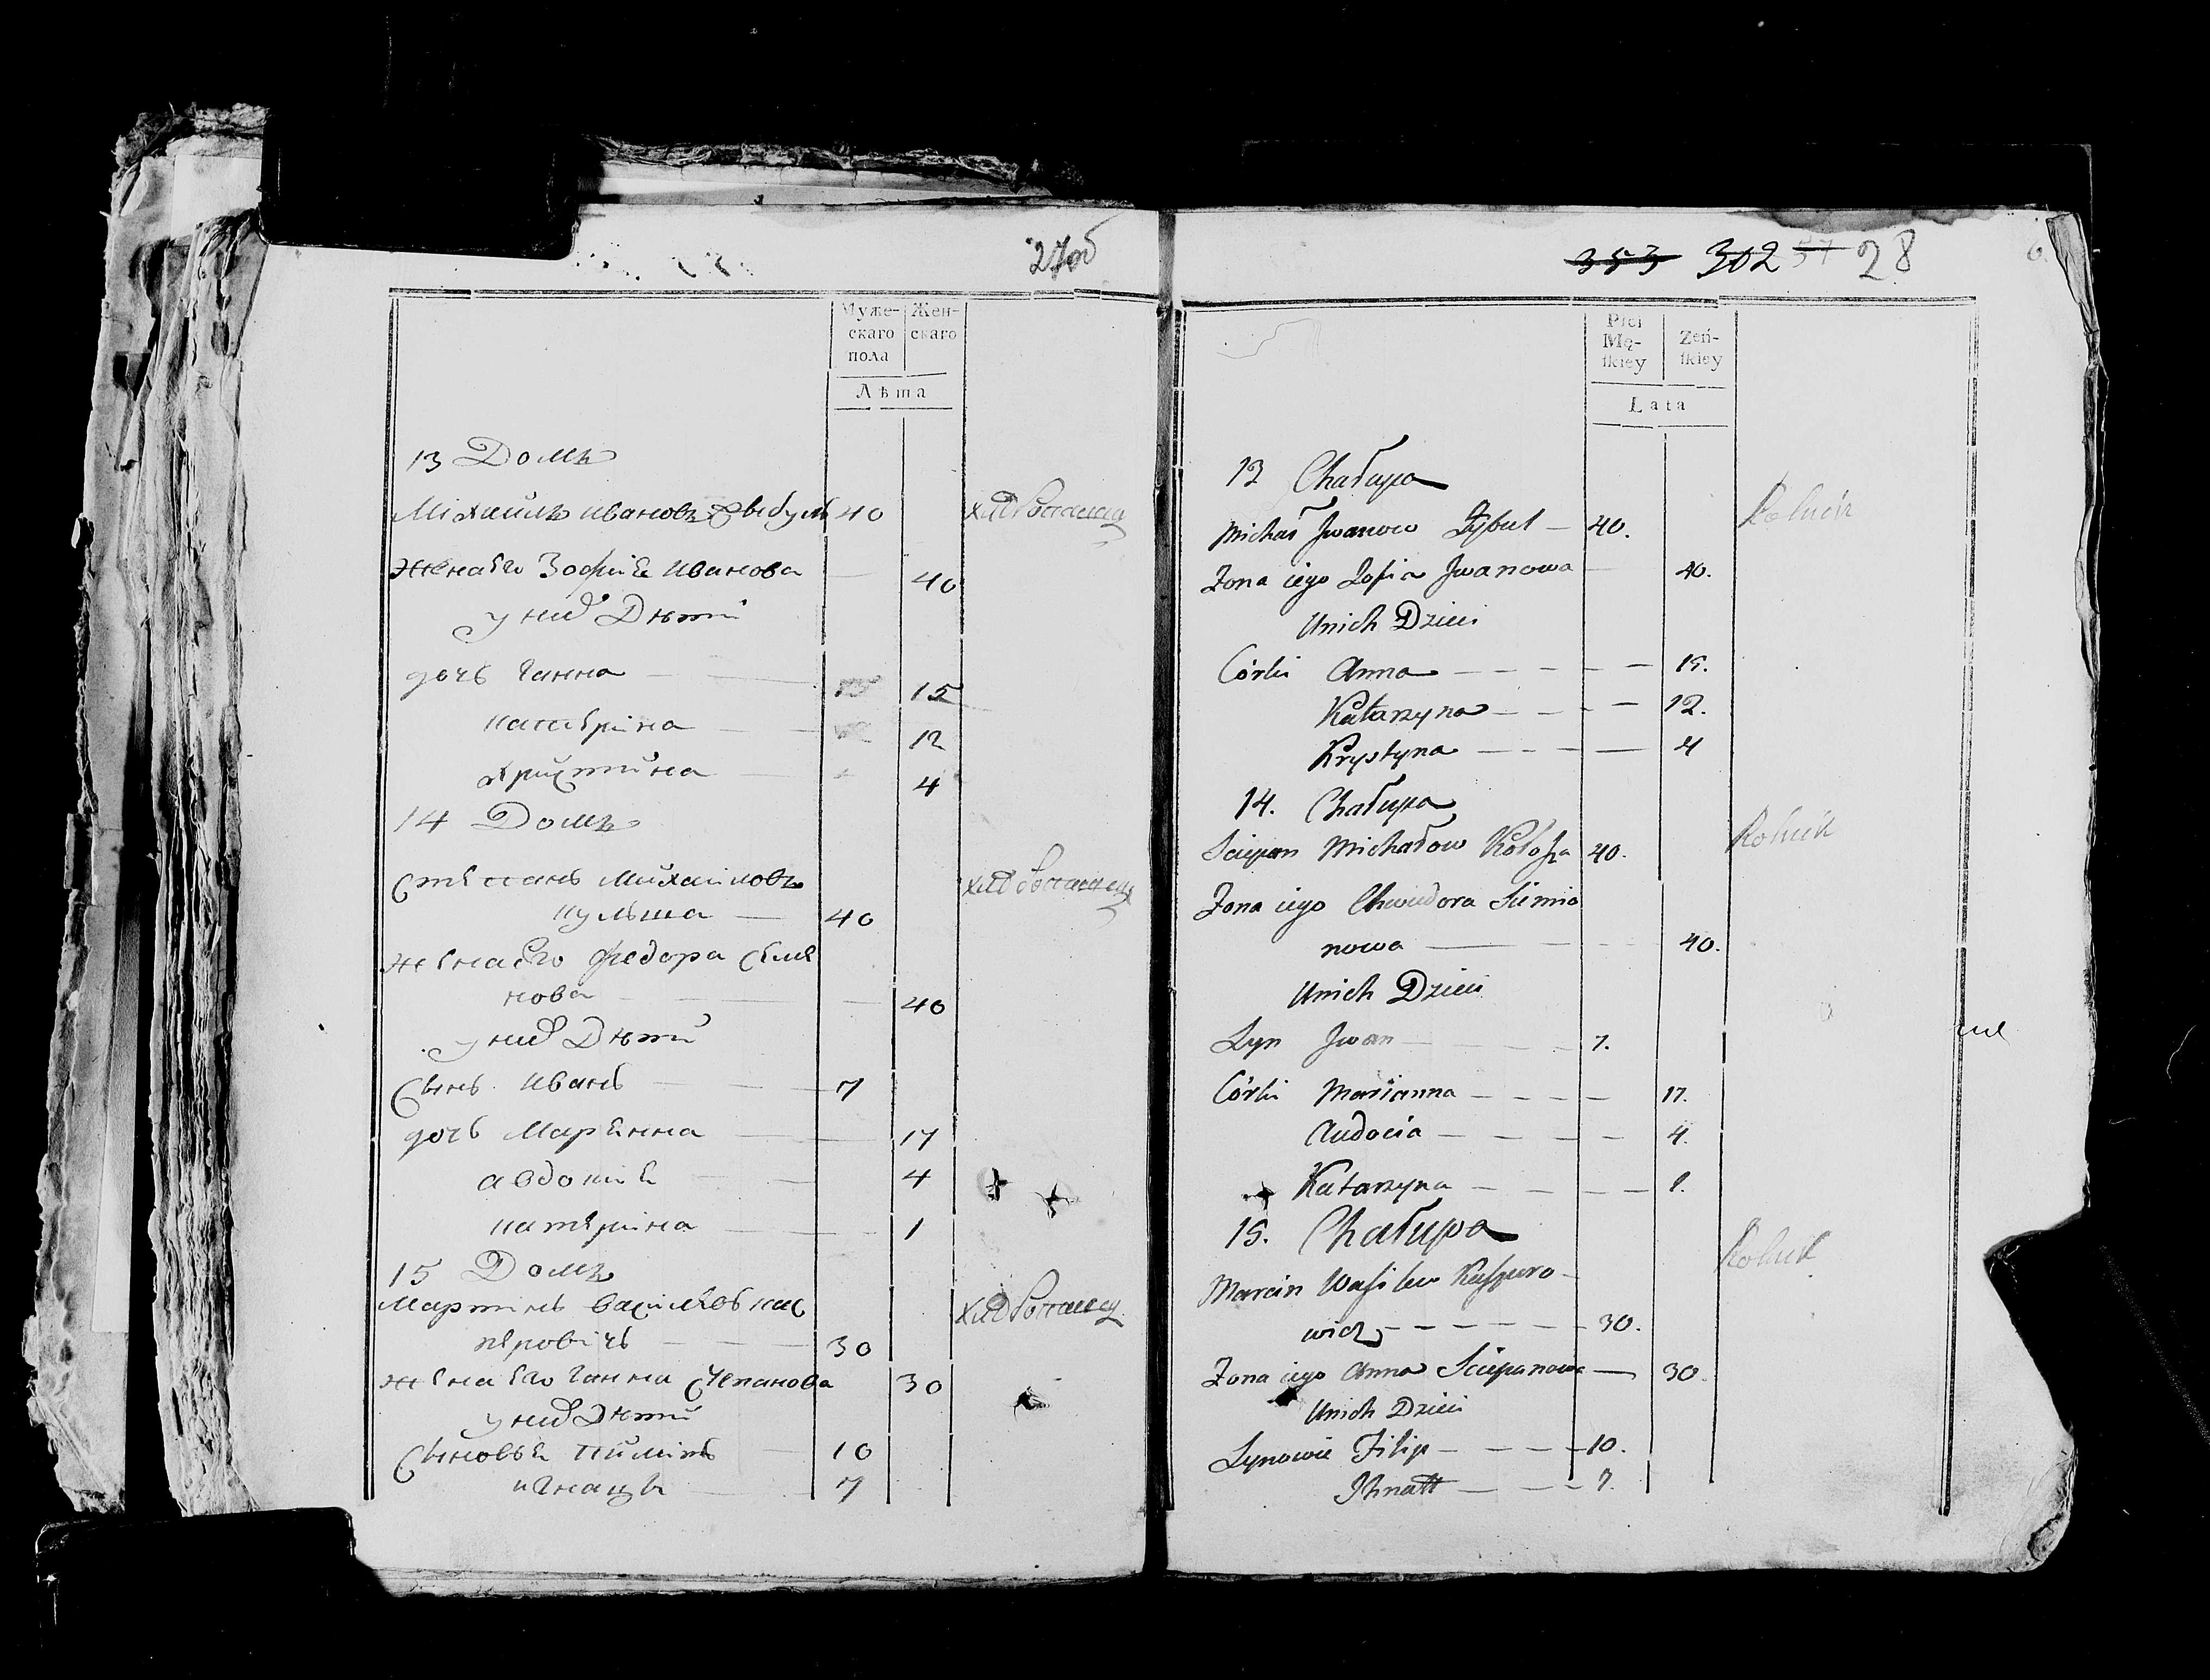 27об
Муже-
скаго
пола
Жен-
скаго
Лѣта
13 Домъ
Михайлъ Ивановъ Цыбуль 40
хлебопашец
Жена его Зофия Иванова 40
у них Дѣти
дочь Ганна 15
Катерина 12
Христина 4
14 Домъ
Степанъ Михайловъ
хлебопашец
Кульша 40
Жена его Федора Семе
нова 40
у них Дѣти
Сынъ Иванъ 7
дочь Марянна 17
Авдокия 4
Катерина 1
15 Домъ
Мартинъ Василевъ Кас
хлебопашец
перовичъ 30
жена его Ганна Степанова 30
у них Дѣти
Сыновья Пилипъ 10
Игнацъ 7
353 302 57 28
Płci
Mę-
ſkiey
Żeń-
ſkiey
Lata
13 Chałupa
Michał Jwanow Cybul — 40.
Rolnik
Zona iego Zofia Jwanowa — 40.
Unich Dzieci
Córki Anna — — — — 15.
Katarzyna — — — — 12.
Krystyna — — — — 4
14. Chałupa
Sciepan Michałow 40.
Rolnik
Zona iego Chwiedora Siemio
nowa — — — 40.
Unich Dzieci
Syn Jwan — — — — 7.
Córki Marianna — — — — 17.
Audocia — — — — 4.
Katarzyna — — — — 1.
15. Chałupa
Rolnik
Marcin Wasilew Kaszpero-
wicz — — — — — 30.
Zona iego Anna Sciepanowa — 30.
Unich Dzieci
Synowie Filip — — — — 10.
Ihnatt — — — 7.